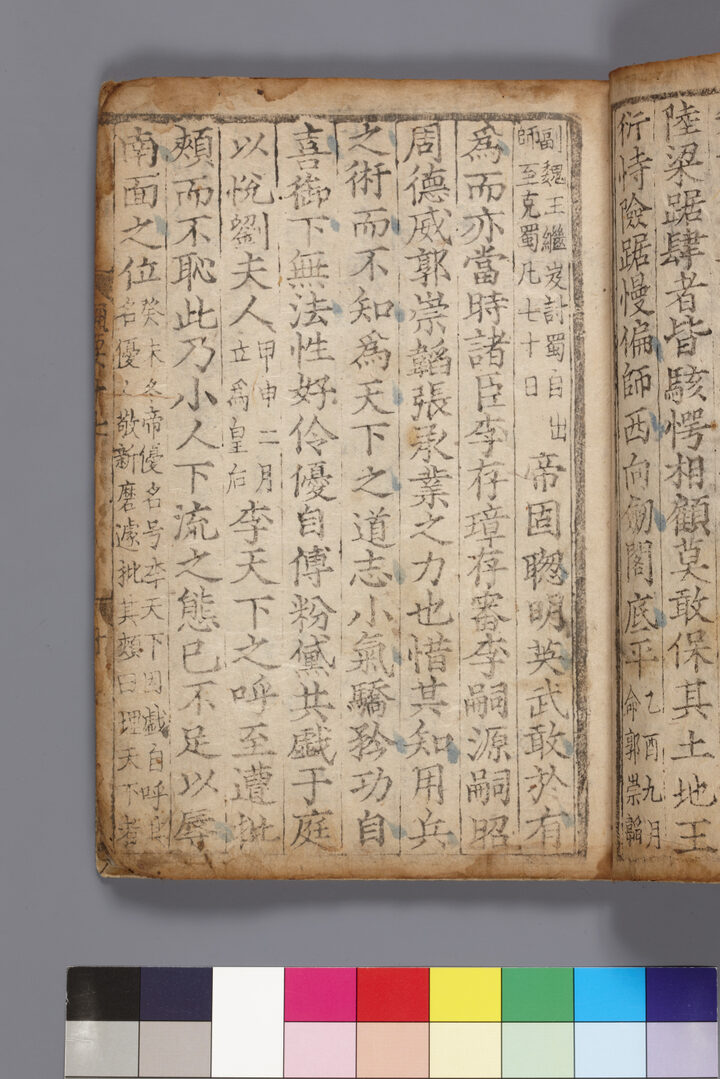 陸梁踞肆者皆駭愕相顧莫敢保其土地王
衍恃險踞慢偏師西向劒閣底平乙酉九月
命郭崇韜
副魏王繼岌討蜀自出
師至克蜀凡七十日
帝固聦明英武敢於有
爲而亦當時諸臣李存璋存審李嗣源嗣昭
周德威郭崇韜張承業之力也惜其知用兵
之術而不知爲天下之道志小氣驕矜功自
喜御下無法性好伶優自傅粉黛共戱于庭
以悅劉夫人甲申二月
立爲皇后
李天下之呼至遭批
頰而不恥此乃小人下流之態已不足以辱
南面之位癸未冬帝優名号李天下因戱自呼
名優敬新磨遽批其頰曰理天下者